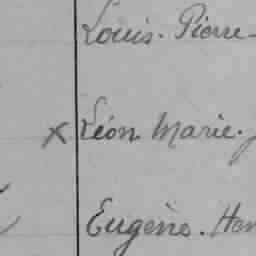 Louis. Pierre
× Léon Marie.
Eugène. Hen